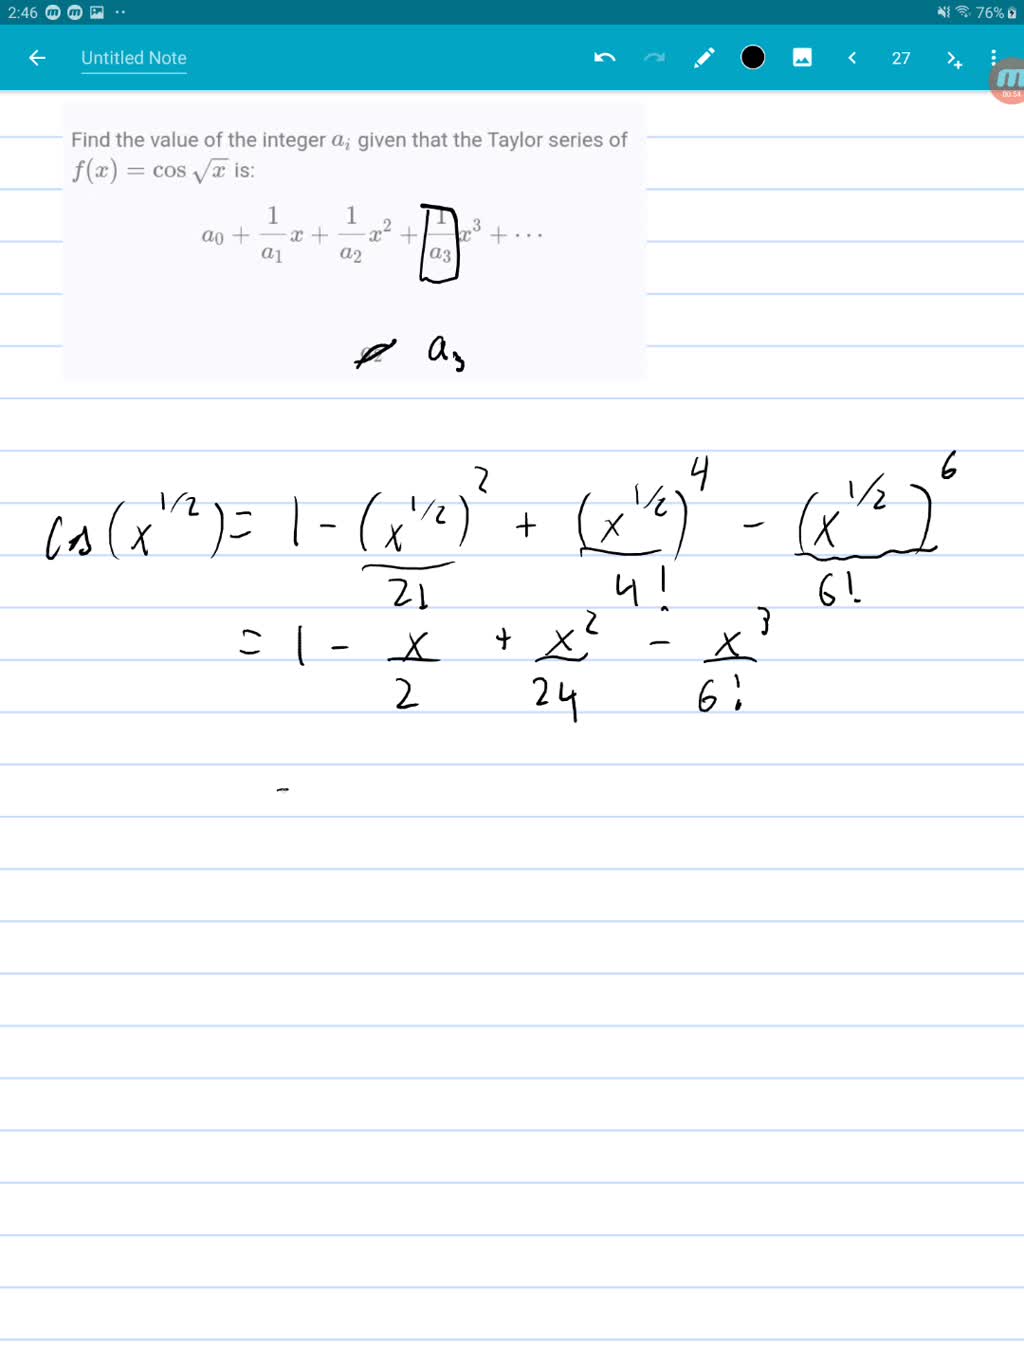 2:46
76%
Untitled Note
27
00:54
Find the value of the integer a_i given that the Taylor series of
f(x) = cos √x is:
a_0 + 1/a_1 x + 1/a_2 x^2 + 1/a_3 x^3 + ···
a_3
cos(x^{1/2}) = 1 - (x^{1/2})^2/2! + (x^{1/2})^4/4! - (x^{1/2})^6/6!
= 1 - x/2 + x^2/24 - x^3/6!
-